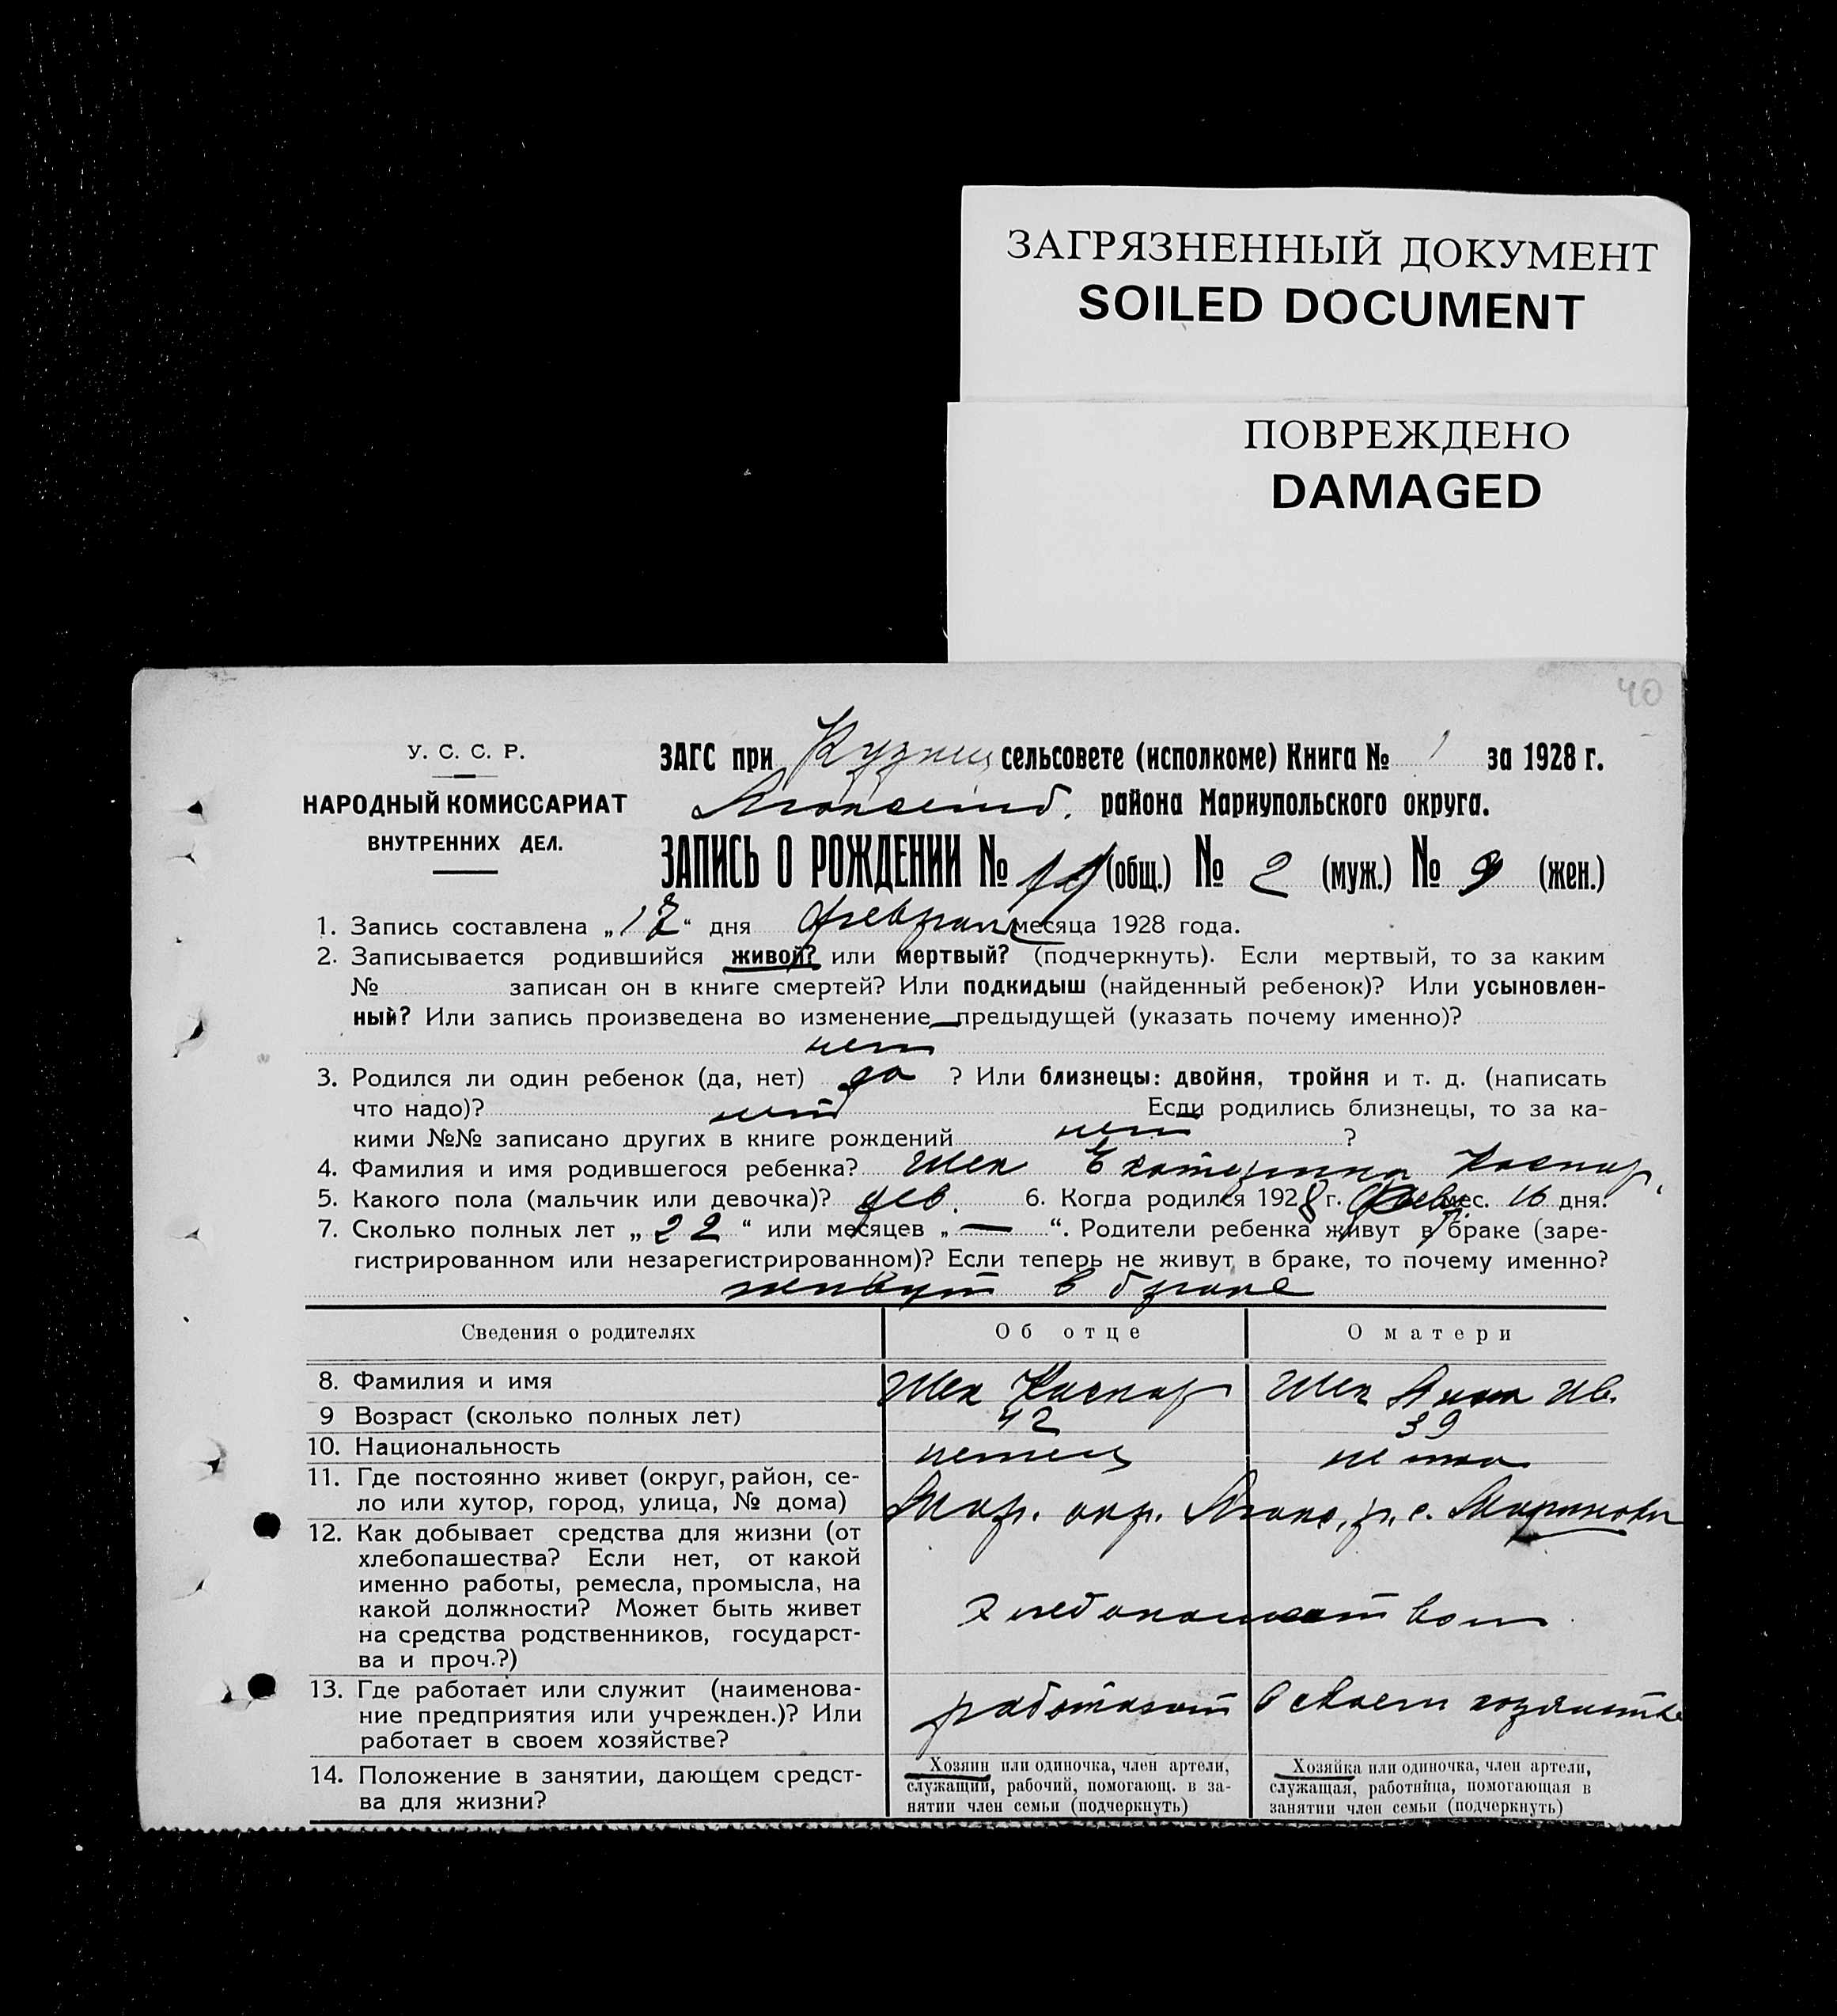 ЗАГРЯЗНЕННЫЙ ДОКУМЕНТ
SOILED DOCUMENT
ПОВРЕЖДЕНО
DAMAGED
40
У. С. С. Р.
НАРОДНЫЙ КОМИССАРИАТ
ВНУТРЕННИХ ДЕЛ.
ЗАГС при Кузнец сельсовете (исполкоме) Книга № 1 за 1928 г.
района Мариупольского округа.
ЗАПИСЬ О РОЖДЕНИИ № (общ.) № 2 (муж.) № 9 (жен.)
1. Запись составлена „17“ дня февраля месяца 1928 года.
2. Записывается родившийся живой? или мертвый? (подчеркнуть). Если мертвый, то за каким
№ записан он в книге смертей? Или подкидыш (найденный ребенок)? Или усыновлен-
ный? Или запись произведена во изменение предыдущей (указать почему именно)?
нет
3. Родился ли один ребенок (да, нет) да ? Или близнецы: двойня, тройня и т. д. (написать
что надо)? нет Если родились близнецы, то за ка-
кими №№ записано других в книге рождений нет ?
4. Фамилия и имя родившегося ребенка? Шек Екатерина Каспар.
5. Какого пола (мальчик или девочка)? дев. 6. Когда родился 1928 г. фев. мес. 16 дня.
7. Сколько полных лет „22“ или месяцев „—“. Родители ребенка живут в браке (заре-
гистрированном или незарегистрированном)? Если теперь не живут в браке, то почему именно?
живут в браке
Сведения о родителях Об отце О матери
8. Фамилия и имя Шек Каспар Шек Анна Ив.
9 Возраст (сколько полных лет) 42 39
10. Национальность немец немка
11. Где постоянно живет (округ, район, се-
ло или хутор, город, улица, № дома) Мар. окр. р. с.
12. Как добывает средства для жизни (от
хлебопашества? Если нет, от какой
именно работы, ремесла, промысла, на
какой должности? Может быть живет
на средства родственников, государст-
ва и проч.?)
хлебопашеством
13. Где работает или служит (наименова-
ние предприятия или учрежден.)? Или
работает в своем хозяйстве?
работают в своем хозяйстве
14. Положение в занятии, дающем средст-
ва для жизни?
Хозяин или одиночка, член артели,
служащий, рабочий, помогающ. в за-
нятии член семьи (подчеркнуть)
Хозяйка или одиночка, член артели,
служащая, работница, помогающая в
занятии член семьи (подчеркнуть)